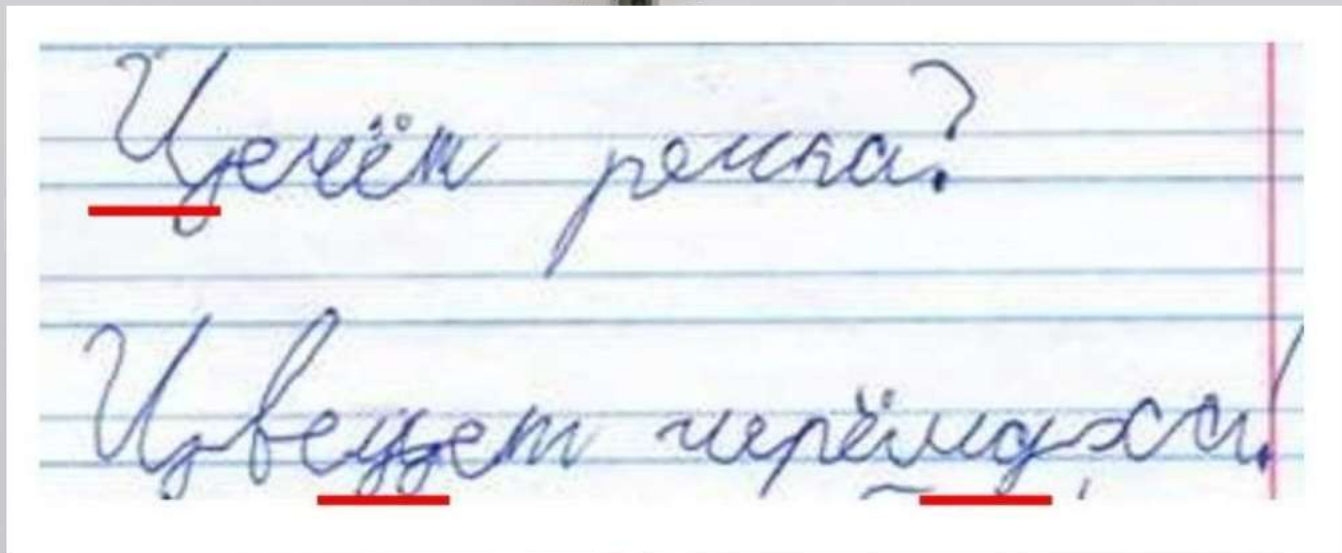 Цечёт речка?
Цвецет черёмдха!